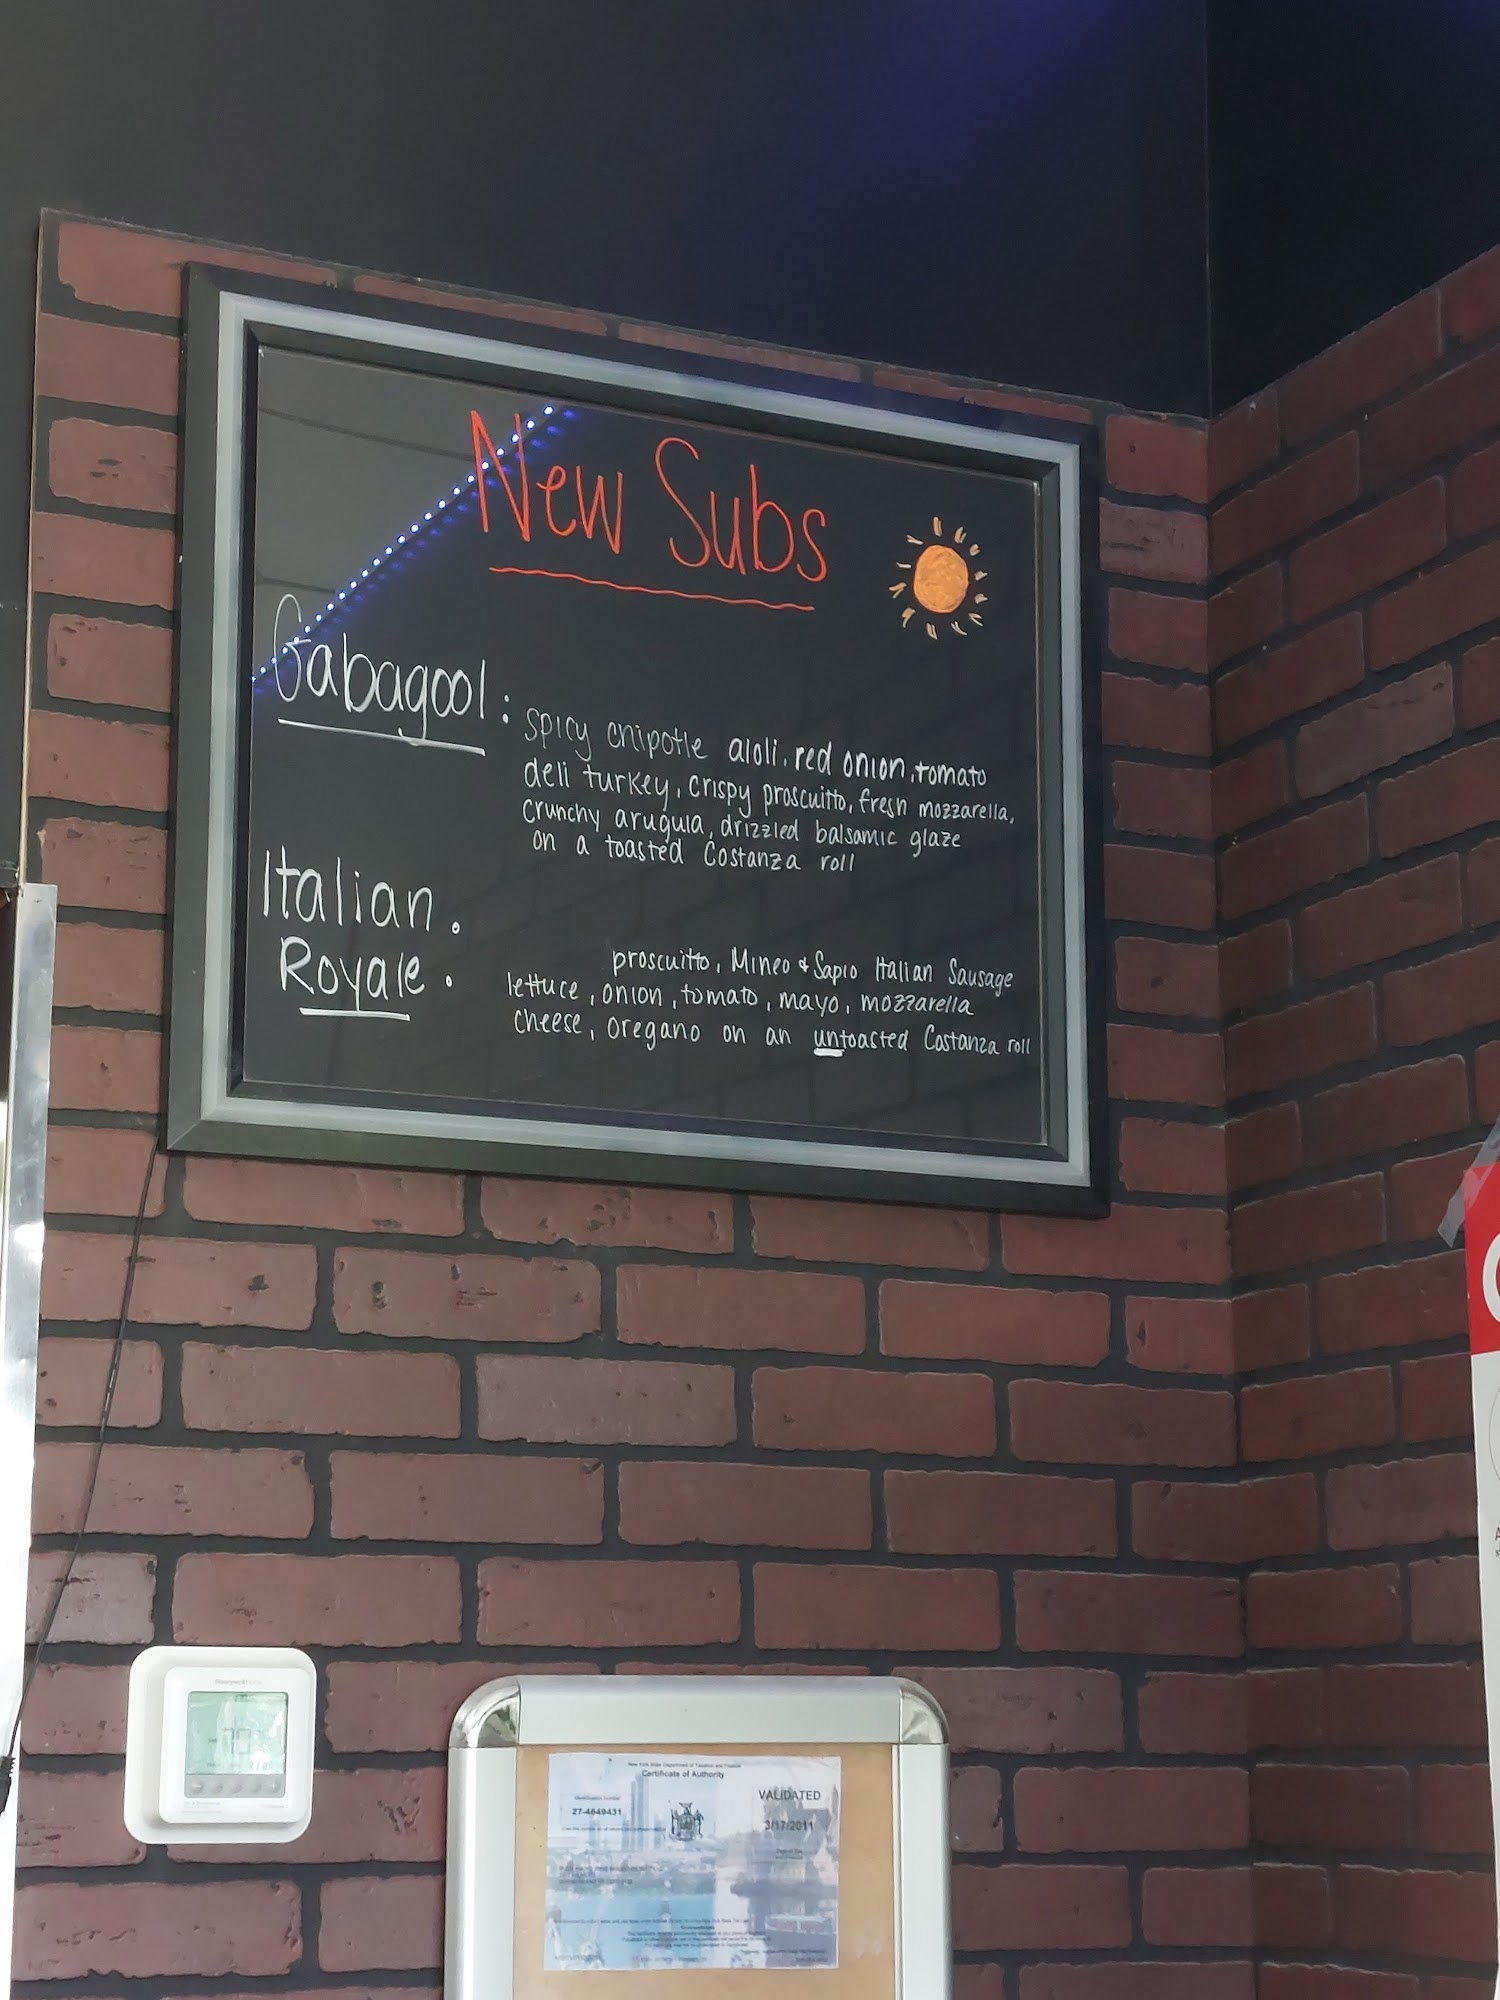 New Subs
Gabagool:
spicy chipotle aioli, red onion, tomato
deli turkey, crispy proscuitto, fresh mozzarella,
crunchy arugula, drizzled balsamic glaze
on a toasted Costanza roll
Italian
Royale:
proscuitto, Mineo & Sapio Italian Sausage
lettuce, onion, tomato, mayo, mozzarella
cheese, oregano on an untoasted Costanza roll
Honeywell
New York State Department of Taxation and Finance
Certificate of Authority
Identification number
27-4649431
VALIDATED
3/17/2011